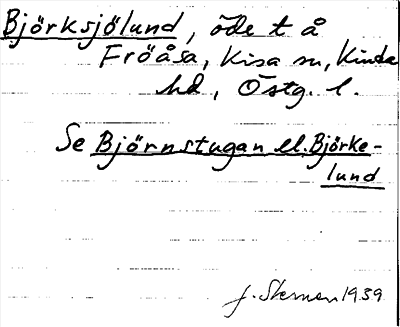 Björksjölund, öde t å
Fröåsa, Kisa sn, Kinda
hd, Östg. l.
Se Björnstugan el. Björke-
lund
J. 1939